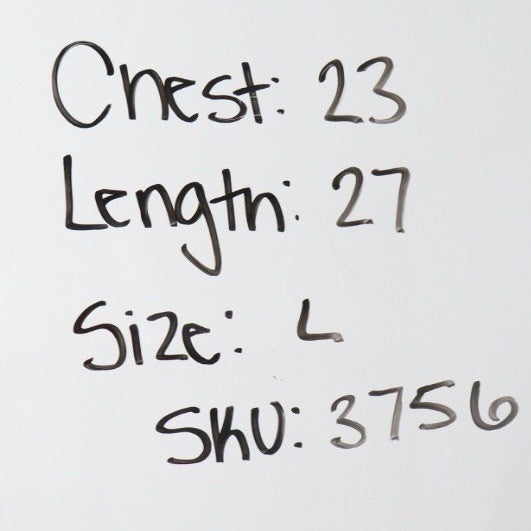 Chest: 23
Length: 27
Size: L
SKU: 3756